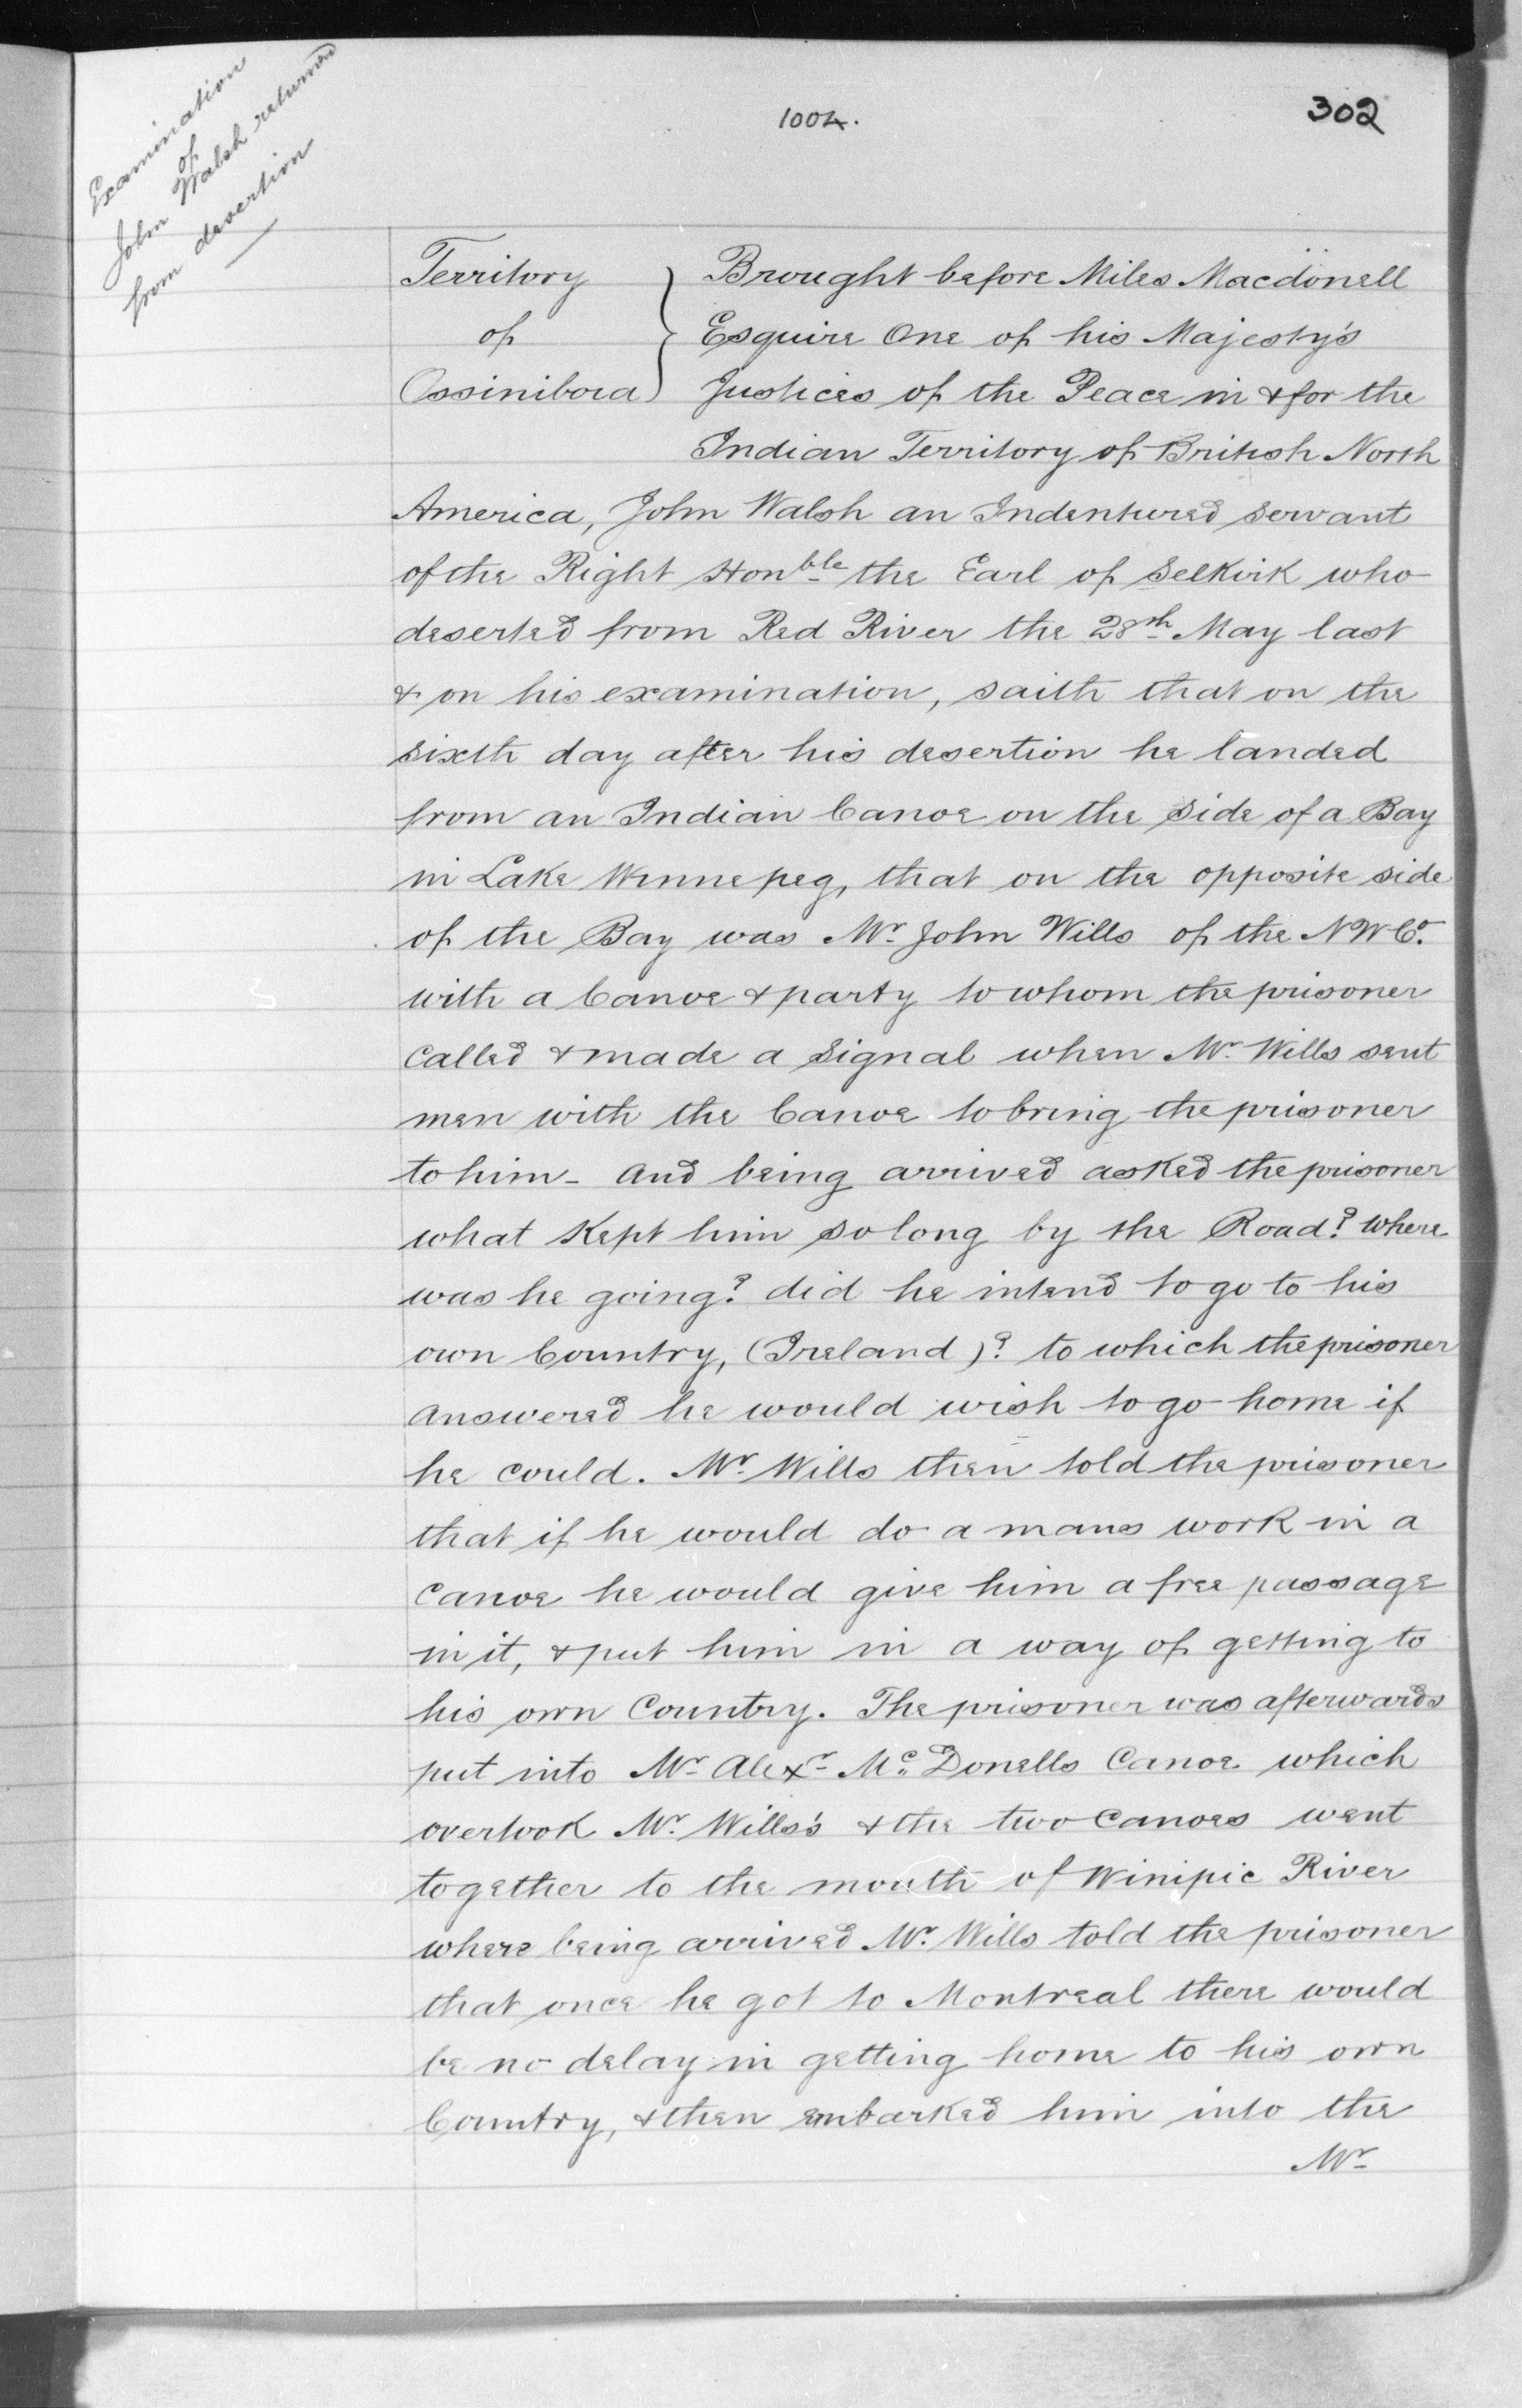 1004.
302
Examination
of
John Walsh returned
from desertion
Territory } Brought before Miles Macdonell
of } Esquire One of his Majesty's
Ossiniboia } Justices of the Peace in & for the
Indian Territory of British North
America, John Walsh an Indentured servant
of the Right Honble the Earl of Selkirk who
deserted from Red River the 28th May last
& on his examination, saith that on the
sixth day after his desertion he landed
from an Indian Canoe on the side of a Bay
in Lake Winnepeg, that on the opposite side
of the Bay was Mr John Wills of the NWCo.
with a Canoe & party to whom the prisoner
called & made a signal when Mr Wills sent
men with the Canoe to bring the prisoner
to him - And being arrived asked the prisoner
what kept him so long by the Road? where
was he going? did he intend to go to his
own Country, (Ireland)? to which the prisoner
answered he would wish to go home if
he could. Mr Wills then told the prisoner
that if he would do a mans work in a
Canoe he would give him a free passage
in it, & put him in a way of getting to
his own Country. The prisoner was afterwards
put into Mr Alexr McDonells Canoe which
overtook Mr Wills's & the two Canoes went
together to the mouth of Winipic River
where being arrived Mr. Wills told the prisoner
that once he got to Montreal there would
be no delay in getting home to his own
Country, & then embarked him into the
Mr